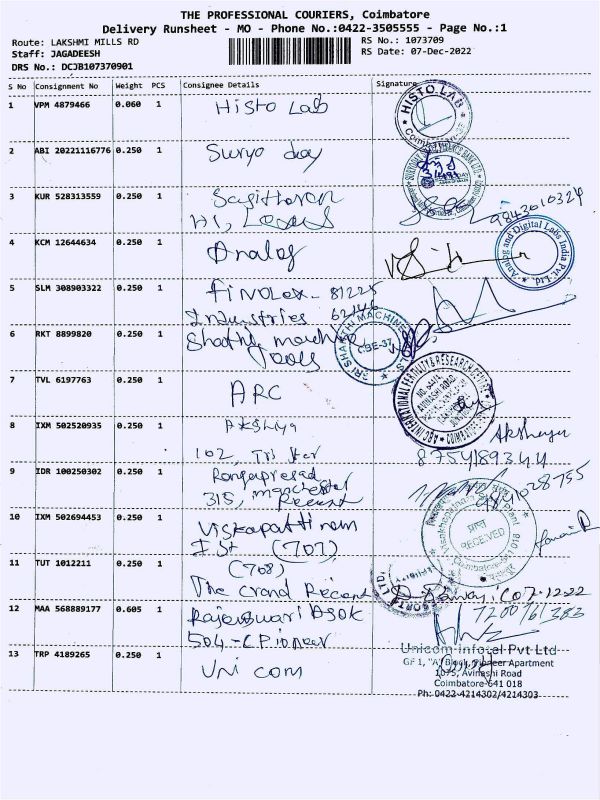 THE PROFESSIONAL COURIERS, Coimbatore
Delivery Runsheet - MO - Phone No.:0422-3505555 - Page No.:1
Route: LAKSHMI MILLS RD
RS No.: 1073709
Staff: JAGADEESH
RS Date: 07-Dec-2022
DRS No.: DCJB107370901
S No Consignment No Weight PCS Consignee Details Signature
1 VPM 4879466 0.060 1 Histo Lab
HISTO LAB
2 ABI 20221116776 0.250 1 Suryo day
3 KUR 528313559 0.250 1
9843010324
4 KCM 12644634 0.250 1 Analog
Analog and Digital Labs India Pvt. Ltd.
5 SLM 308903322 0.250 1 Finolex - 81225
Industries 62146
6 RKT 8899820 0.250 1 Shathi machine
Tools
SRI SHAKTHI MACHINE TOOLS
CBE-37
7 TVL 6197763 0.250 1 ARC
ARC INTERNATIONAL FERTILITY & RESEARCH CENTRE
AVINASHI ROAD
8 IXM 502520935 0.250 1 Akshya
102,
Akshaya
8754189344
9 IDR 100250302 0.250 1 Rangaprasad
315, manchester
Recent
10 IXM 502694453 0.250 1 Viskapattinam
I.St (707)
RECEIVED
Coimbatore-641 018
11 TUT 1012211 0.250 1 (708)
The Grand Recent
07-12-22
12 MAA 568889177 0.605 1 Rajeswari Asok
504-C Pioneer
7200161383
13 TRP 4189265 0.250 1 Uni com
Unicom Infotel Pvt Ltd
GF 1, "A" Block, Pioneer Apartment
1075, Avinashi Road
Coimbatore-641 018
Ph: 0422-4214302/4214303